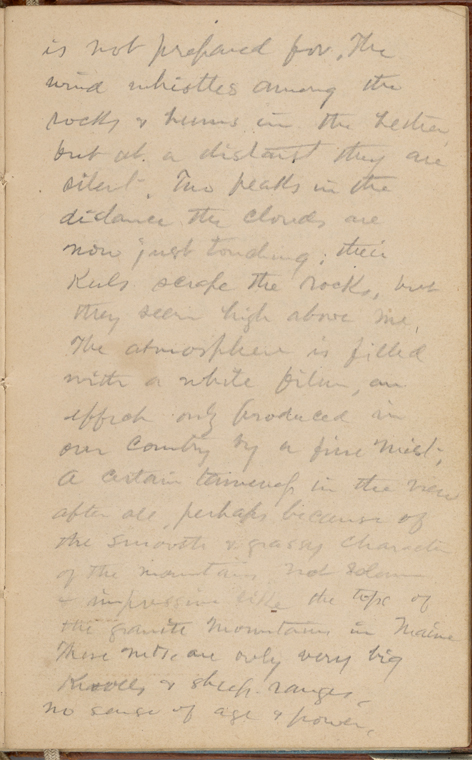 is not prepared for. The
wind whistles among the
rocks & hums in the heather
but at a distant they are
silent. Two peaks in the
distance the clouds are
now just touching; their
Keels scrape the rocks, but
they seem high above me.
The atmosphere is filled
with a white film, an
effect only produced in
our country by a fine mist;
A certain tameness in the view
after all, perhaps because of
the smooth & grassy character
of the mountains not solemn
& impressive like the tops of
the granite mountains in Maine
These mts. are only very big
Knolls & sheep ranges,
no sense of age & power,